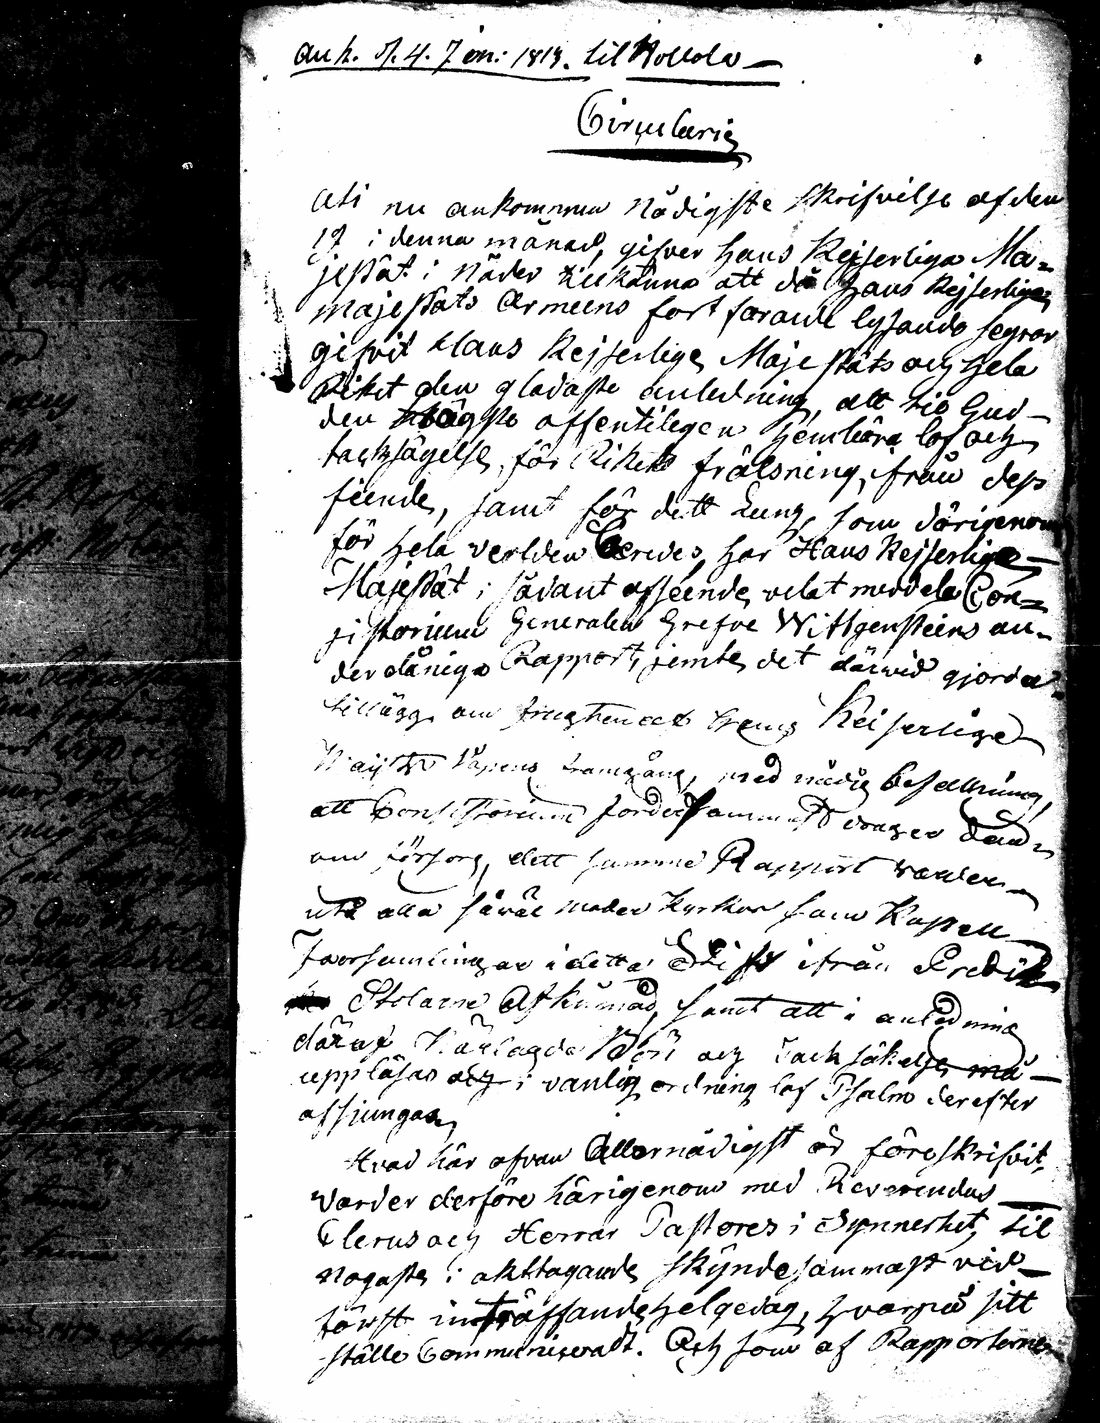 ank. d. 4. Jan: 1813. til Hollola
Circulaire
Uti nu ankommen Nådigste skrifvelse af den
19 i denna månad, gifver Hans Kejserliga Ma-
jestät i Nåder tillkänna att då Hans Kejserliga
Majestäts Armeens fortfarande lysande segrar
gifvit Hans Kejserliga Majestäts och hela
Riket den gladaste anledning, att til Gud
den högste offentligen hembära lof och
tacksägelse, för Rikets frälsning, ifrån dess
fiende, samt för dett Lung, som därigenom
för hela verlden beredes, har Hans Kejserliga
Majestät i sådant afseende velat meddela Con-
sistorium Generalen Grefve Wittgensteins un-
derdåniga Rapport, jemte det därvid gjorda
tillägg om Hans Keiserliga
Maj:ts Vapens framgång, med nådig befallning,
att Consistorium fordersammast drager
om försorg, dett samma Rapport varder
uti alla såväl moder Kyrkor som Kapell
Församlingar i detta Stift ifrån Predik
Stolarne Afkunnad, samt att i anledning
däraf Bön och Tacksäkelse må
uppläsas och i vanlig ordning lof Psalm derefter
afsjungas,
Hvad här ofvan Allernådigst är föreskrifvit,
varder derföre härigenom med Reverendus
Clerus och Herrar Pastores i Synnerhet, til
nogaste i akttagande skyndesammast vid
först inträffande helgedag, hvarpå sitt
ställe Communiceradt. Och som af Rapporterne